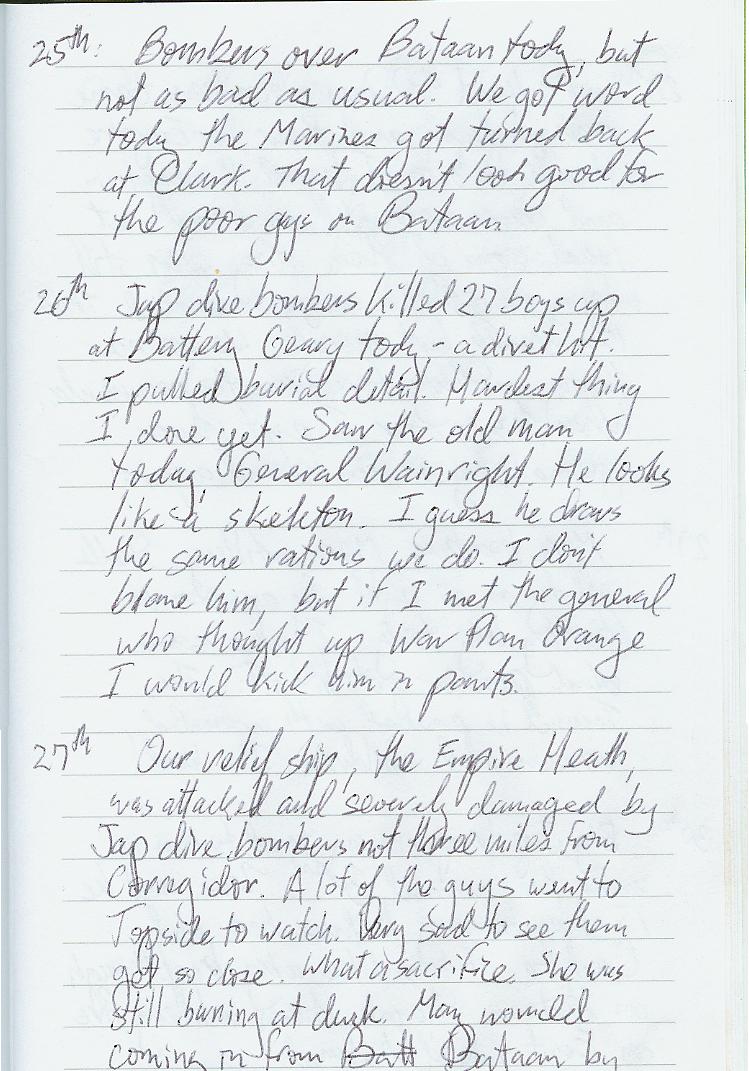 25th: Bombers over Bataan tody, but
not as bad as usual. We got word
tody the Marines got turned back
at Clark. That doesn't look good for
the poor gys on Bataan
26th Jap dive bombers killed 27 boys up
at Battery Geary tody - a divet hit.
I pulled burial detail. Hardest thing
I done yet. Saw the old man
today, General Wainright. He looks
like a skeleton. I guess he draws
the same rations we do. I don't
blame him, but if I met the general
who thought up War Plan Orange
I would kick him n pants.
27th Our relief ship, the Empire Heath,
was attacked and severely damaged by
Jap dive bombers not three miles from
Corregidor. A lot of the guys went to
Topside to watch. Very sad to see them
get so close. What a sacrifice. She was
still burning at dusk. May wounded
coming in from Batt Bataan by